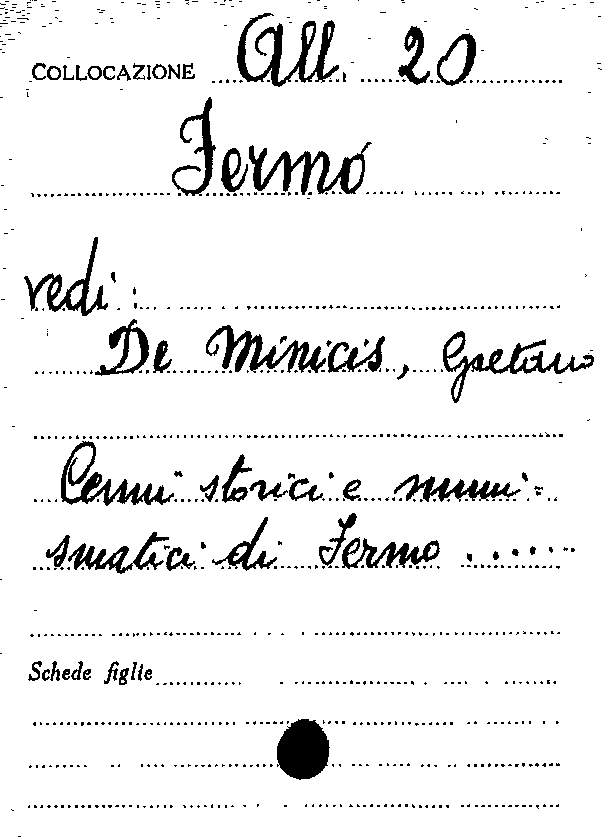 COLLOCAZIONE All. 20
Fermo
vedi:
De Minicis, Gaetano
Cenni storici e numi=
smatici di Fermo ......
Schede figlie